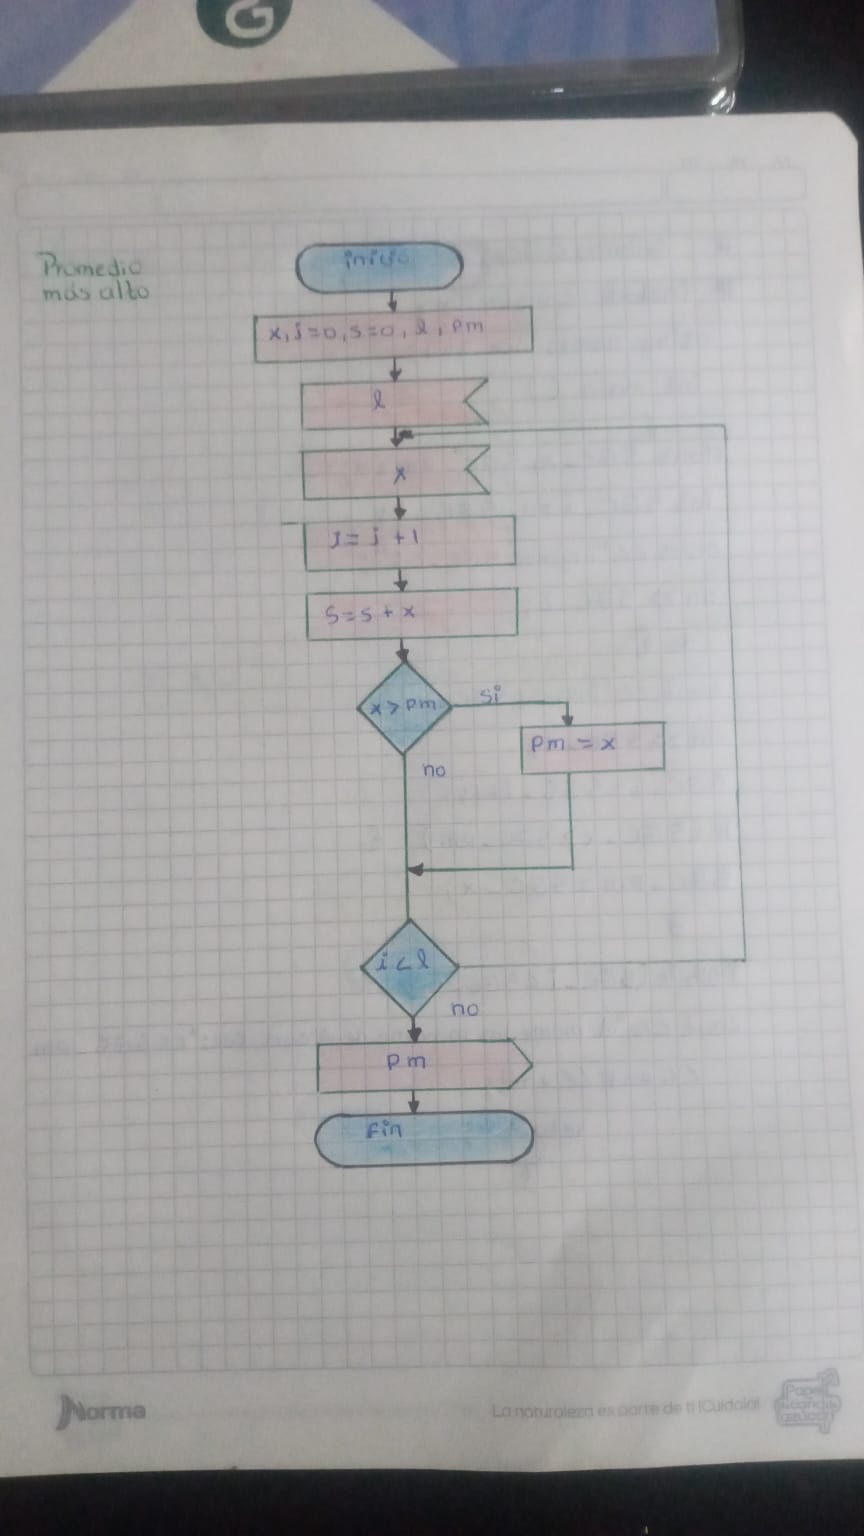 G
Promedio
más alto
inicio
x, j=0, s=0, l, pm
l
x
j= j +1
s=s + x
x > pm
si
pm = x
no
i < l
no
pm
Fin
Norma
La naturaleza es parte de ti !Cuidala!